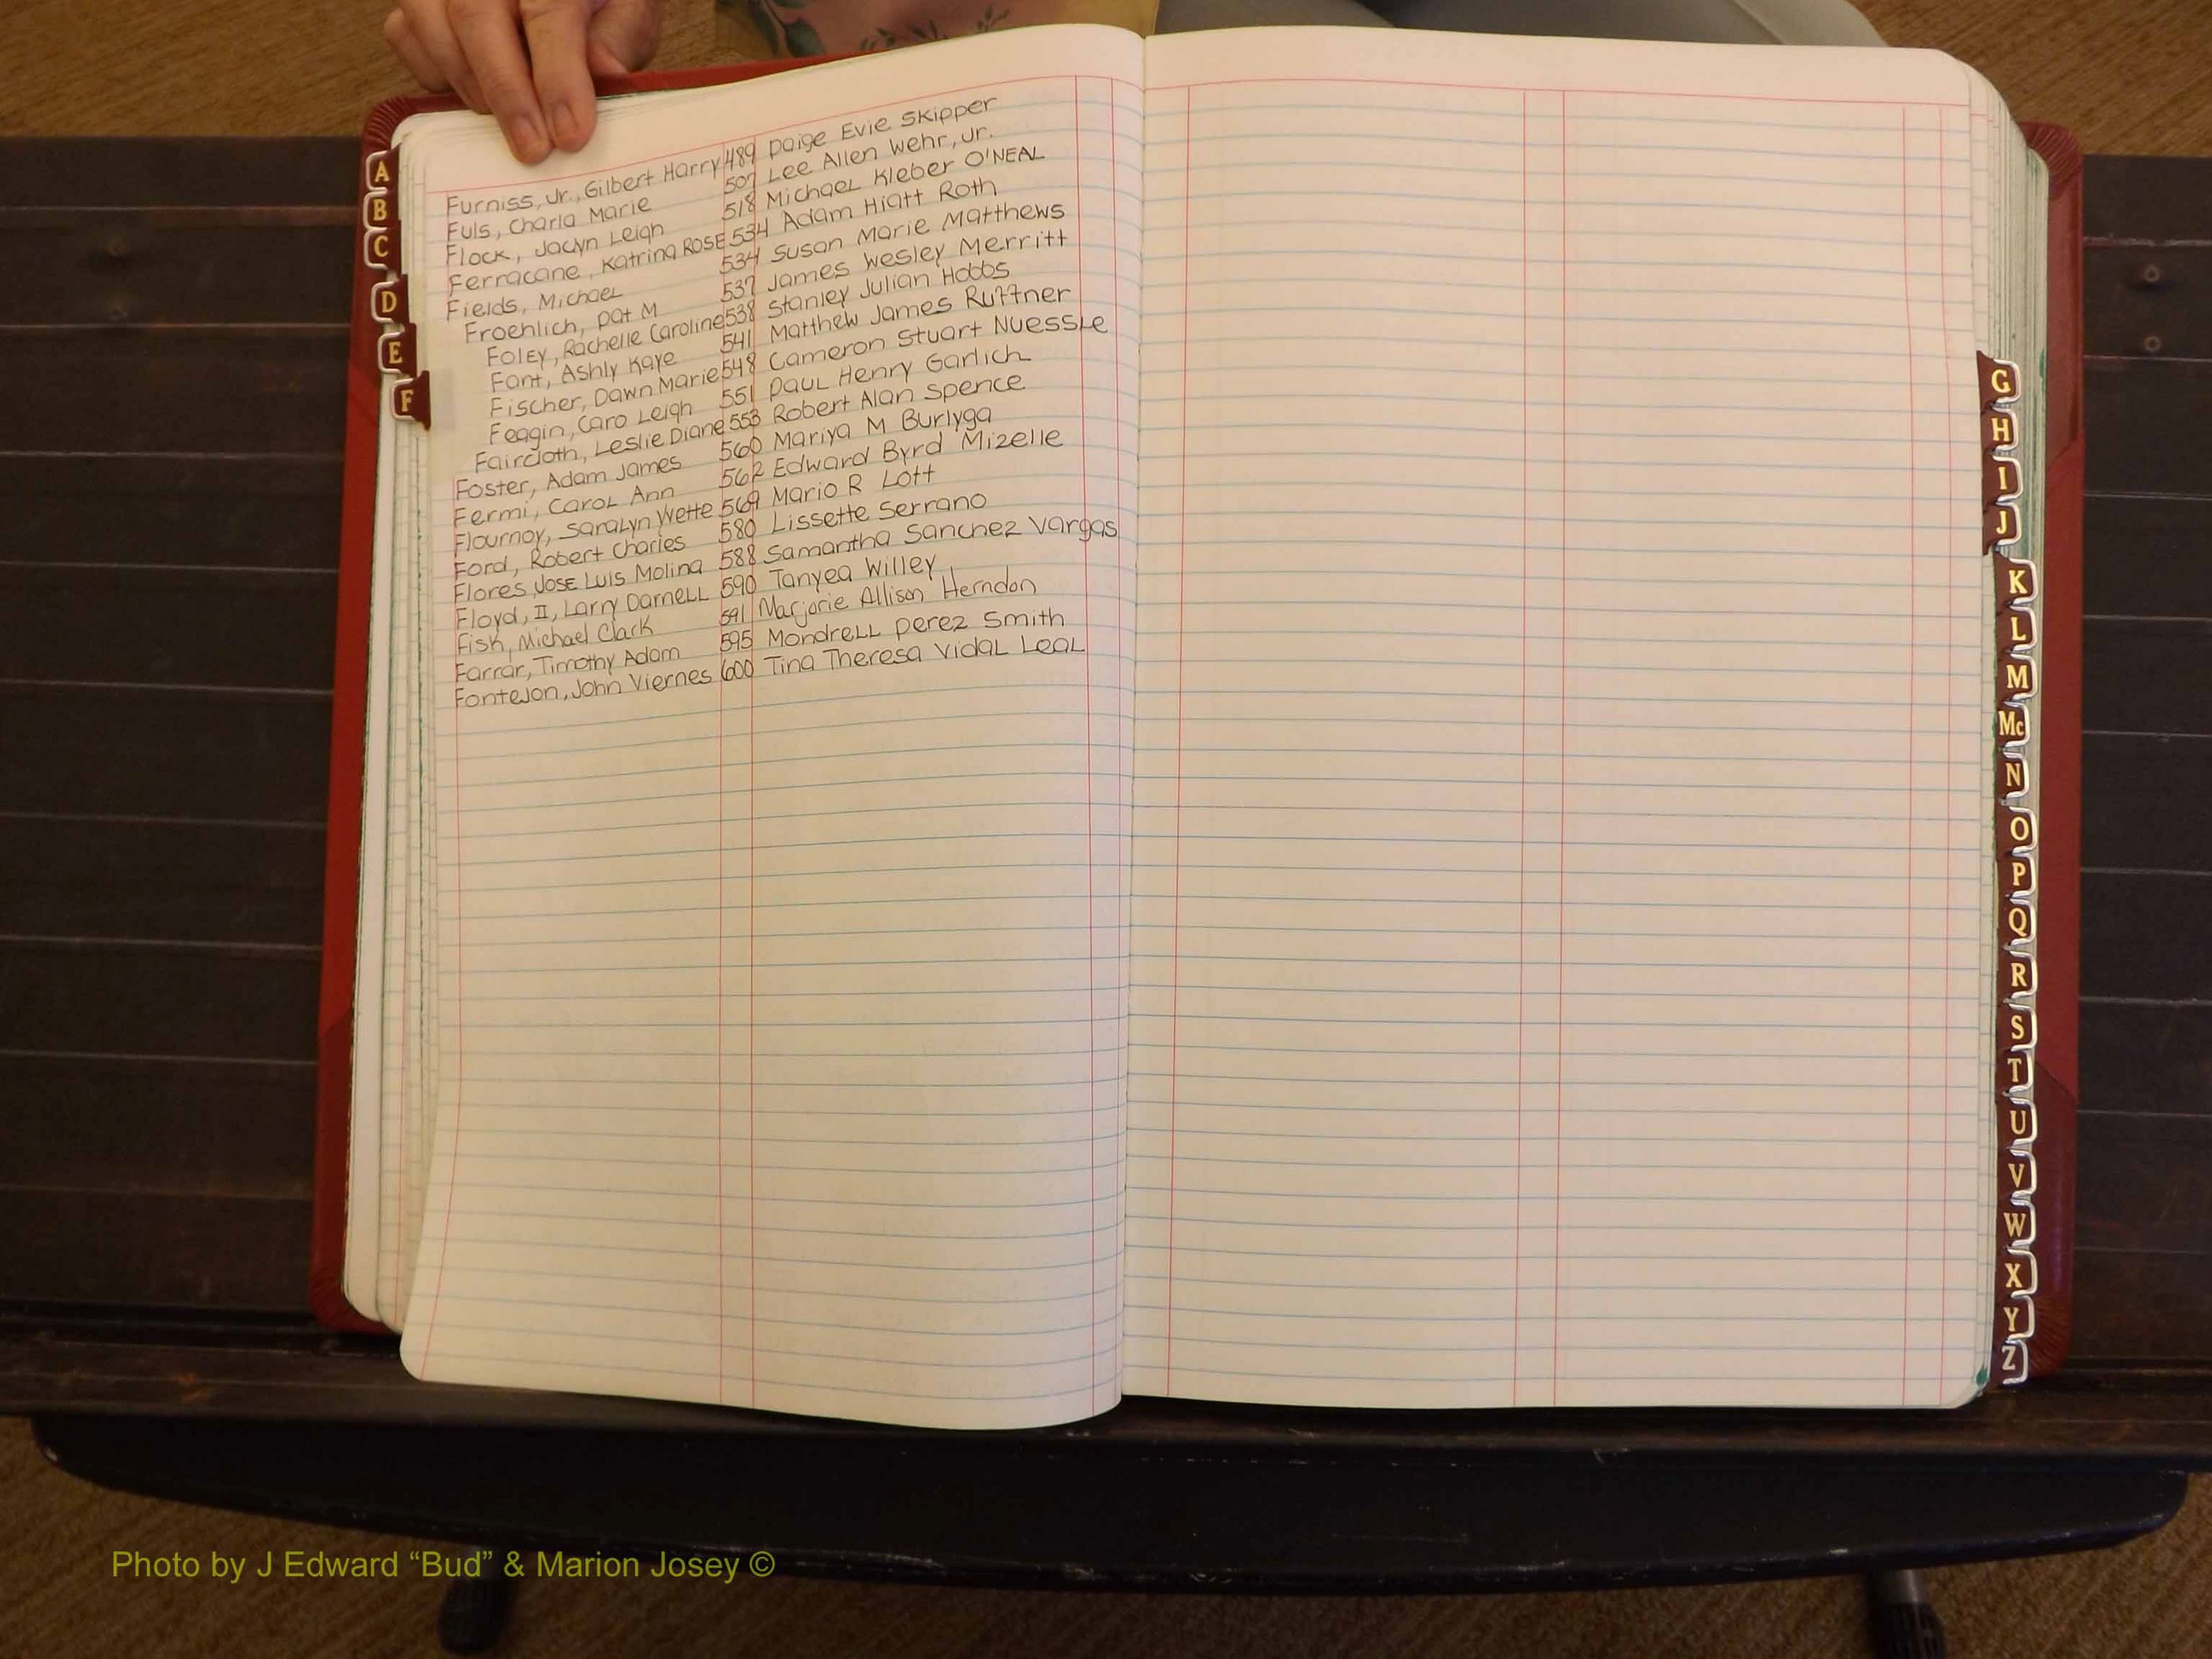 Furniss, Jr., Gilbert Harry 489 Paige Evie Skipper
Fuls, Charla Marie 507 Lee Allen Wehr, Jr.
Flock, Jaclyn Leigh 518 Michael Kleber O'NEAL
Ferracane, Katrina ROSE 534 Adam Hiatt Roth
Fields, Michael 534 Susan Marie Matthews
Froehlich, Pat M 537 James Wesley Merritt
Foley, Rachelle Caroline 538 Stanley Julian Hobbs
Font, Ashly Kaye 541 Matthew James Ruttner
Fischer, Dawn Marie 548 Cameron Stuart Nuessle
Feagin, Caro Leigh 551 Paul Henry Garlich
Faircloth, Leslie Diane 553 Robert Alan Spence
Foster, Adam James 560 Mariya M Burlyga
Fermi, Carol Ann 562 Edward Byrd Mizelle
Flournoy, Saralyn Yvette 569 Mario R Lott
Ford, Robert Charles 580 Lissette Serrano
Flores, Jose Luis Molina 588 Samantha Sanchez Vargas
Floyd, II, Larry Darnell 590 Tanyea Willey
Fisk, Michael Clark 591 Marjorie Allison Herndon
Farrar, Timothy Adam 595 Mondrell Perez Smith
Fontejon, John Viernes 600 Tina Theresa Vidal Leal
A
B
C
D
E
F
G
H
I
J
K
L
M
Mc
N
O
P
Q
R
S
T
U
V
W
X
Y
Z
Photo by J Edward “Bud” & Marion Josey ©